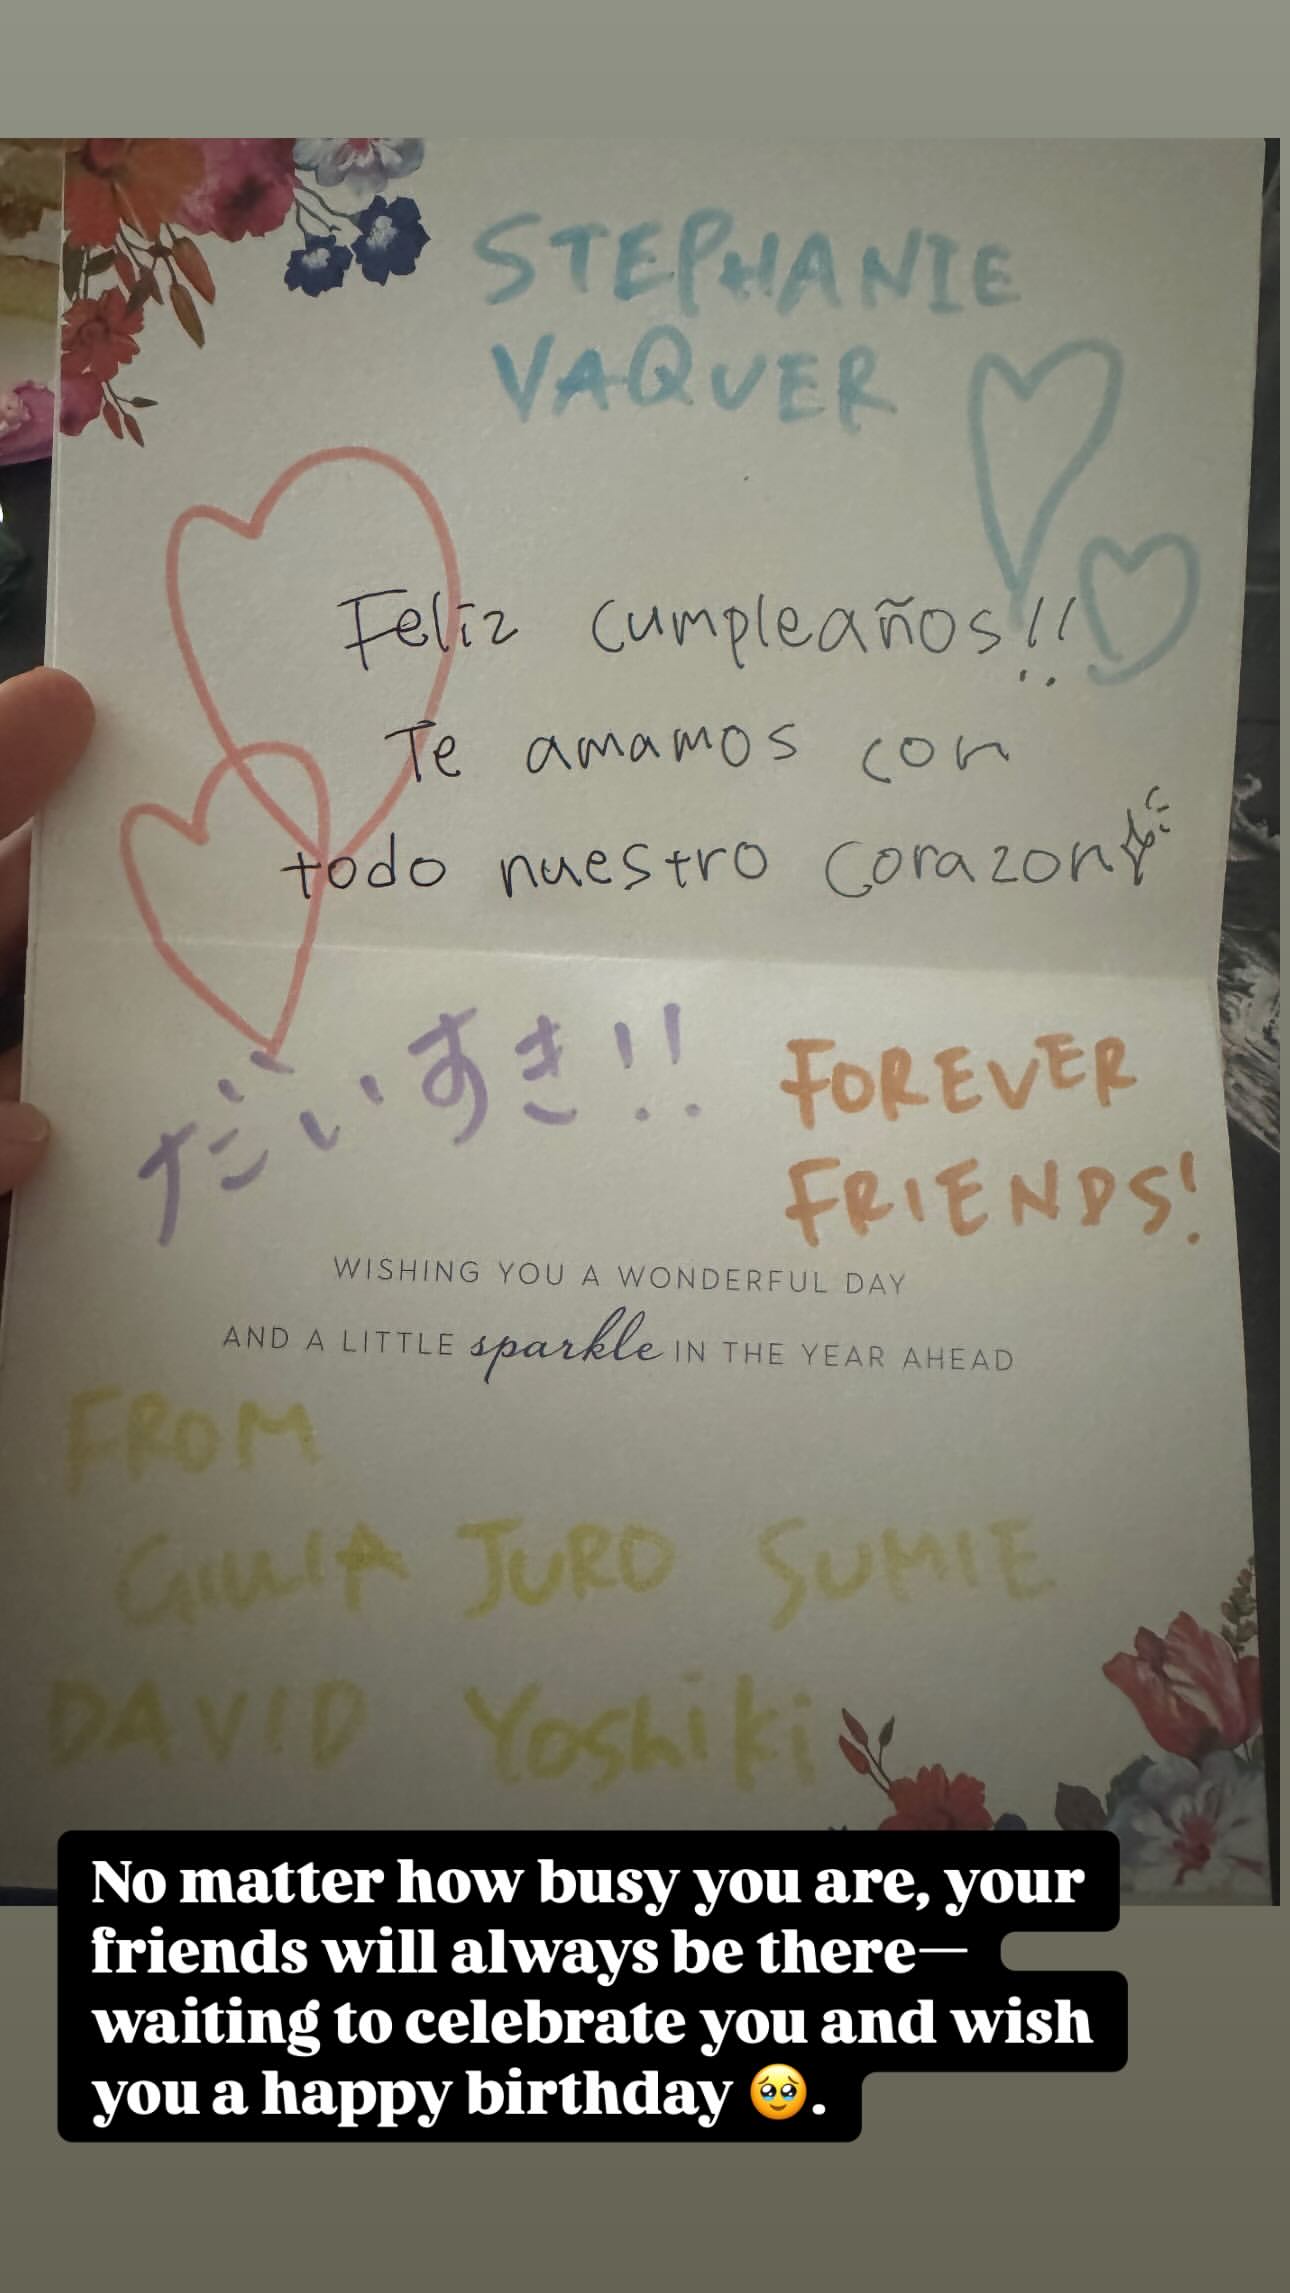 STEPHANIE
VAQUER
Feliz cumpleaños!!
Te amamos con
todo nuestro corazon
だいすき!!
FOREVER
FRIENDS!
WISHING YOU A WONDERFUL DAY
AND A LITTLE sparkle IN THE YEAR AHEAD
FROM
GIULIA JURO SUMIE
DAVID Yoshiki
No matter how busy you are, your
friends will always be there—
waiting to celebrate you and wish
you a happy birthday 🥹.